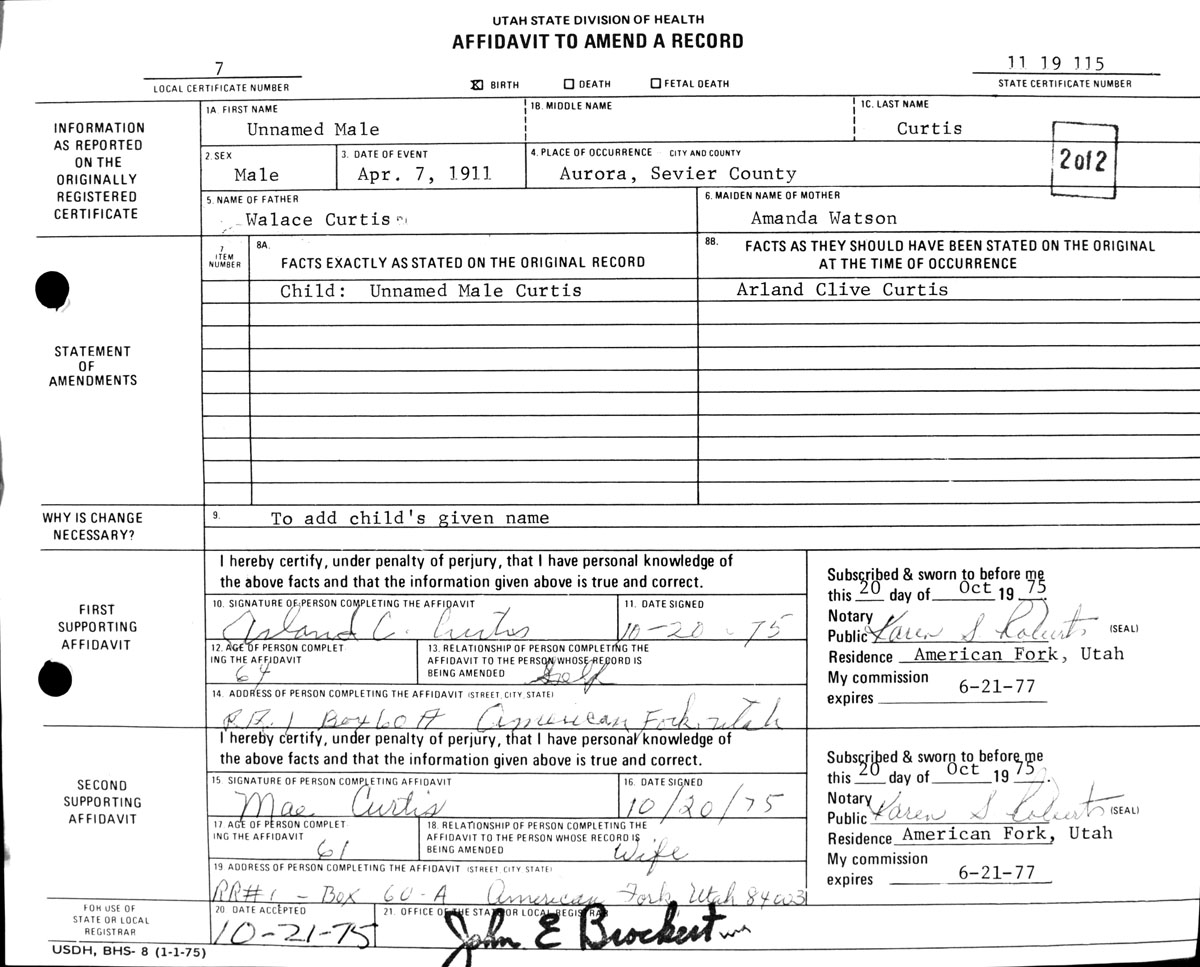 UTAH STATE DIVISION OF HEALTH
AFFIDAVIT TO AMEND A RECORD
7
LOCAL CERTIFICATE NUMBER
☒ BIRTH ☐ DEATH ☐ FETAL DEATH
11 19 115
STATE CERTIFICATE NUMBER
INFORMATION
AS REPORTED
ON THE
ORIGINALLY
REGISTERED
CERTIFICATE
1A. FIRST NAME
Unnamed Male
1B. MIDDLE NAME
1C. LAST NAME
Curtis
2 of 2
2. SEX
Male
3. DATE OF EVENT
Apr. 7, 1911
4. PLACE OF OCCURRENCE - CITY AND COUNTY
Aurora, Sevier County
5. NAME OF FATHER
Walace Curtis
6. MAIDEN NAME OF MOTHER
Amanda Watson
STATEMENT
OF
AMENDMENTS
7.
ITEM
NUMBER
8A.
FACTS EXACTLY AS STATED ON THE ORIGINAL RECORD
8B. FACTS AS THEY SHOULD HAVE BEEN STATED ON THE ORIGINAL
AT THE TIME OF OCCURRENCE
Child: Unnamed Male Curtis
Arland Clive Curtis
WHY IS CHANGE
NECESSARY?
9. To add child's given name
FIRST
SUPPORTING
AFFIDAVIT
I hereby certify, under penalty of perjury, that I have personal knowledge of
the above facts and that the information given above is true and correct.
10. SIGNATURE OF PERSON COMPLETING THE AFFIDAVIT
Arland C. Curtis
11. DATE SIGNED
10-20-75
12. AGE OF PERSON COMPLET
ING THE AFFIDAVIT
64
13. RELATIONSHIP OF PERSON COMPLETING THE
AFFIDAVIT TO THE PERSON WHOSE RECORD IS
BEING AMENDED Self
14. ADDRESS OF PERSON COMPLETING THE AFFIDAVIT (STREET, CITY, STATE)
R.R. 1 Box 60 A American Fork, Utah
Subscribed & sworn to before me
this 20 day of Oct 19 75
Notary
Public Karen S. Roberts (SEAL)
Residence American Fork, Utah
My commission
expires 6-21-77
SECOND
SUPPORTING
AFFIDAVIT
I hereby certify, under penalty of perjury, that I have personal knowledge of
the above facts and that the information given above is true and correct.
15. SIGNATURE OF PERSON COMPLETING AFFIDAVIT
Mae Curtis
16. DATE SIGNED
10/20/75
17 AGE OF PERSON COMPLET
ING THE AFFIDAVIT
61
18. RELATIONSHIP OF PERSON COMPLETING THE
AFFIDAVIT TO THE PERSON WHOSE RECORD IS
BEING AMENDED Wife
19 ADDRESS OF PERSON COMPLETING THE AFFIDAVIT (STREET, CITY, STATE)
RR#1 - Box 60-A American Fork, Utah 84003
Subscribed & sworn to before me
this 20 day of Oct 19 75.
Notary
Public Karen S Roberts (SEAL)
Residence American Fork, Utah
My commission
expires 6-21-77
FOR USE OF
STATE OR LOCAL
REGISTRAR
20 DATE ACCEPTED
10-21-75
21. OFFICE OF THE STATE OR LOCAL REGISTRAR
John E Brockert
USDH, BHS- 8 (1-1-75)